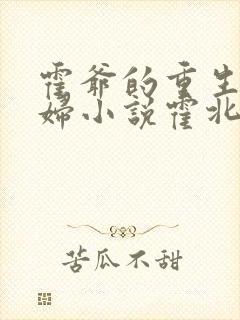 霍爷的重生
婦小説霍北
苦瓜不甜